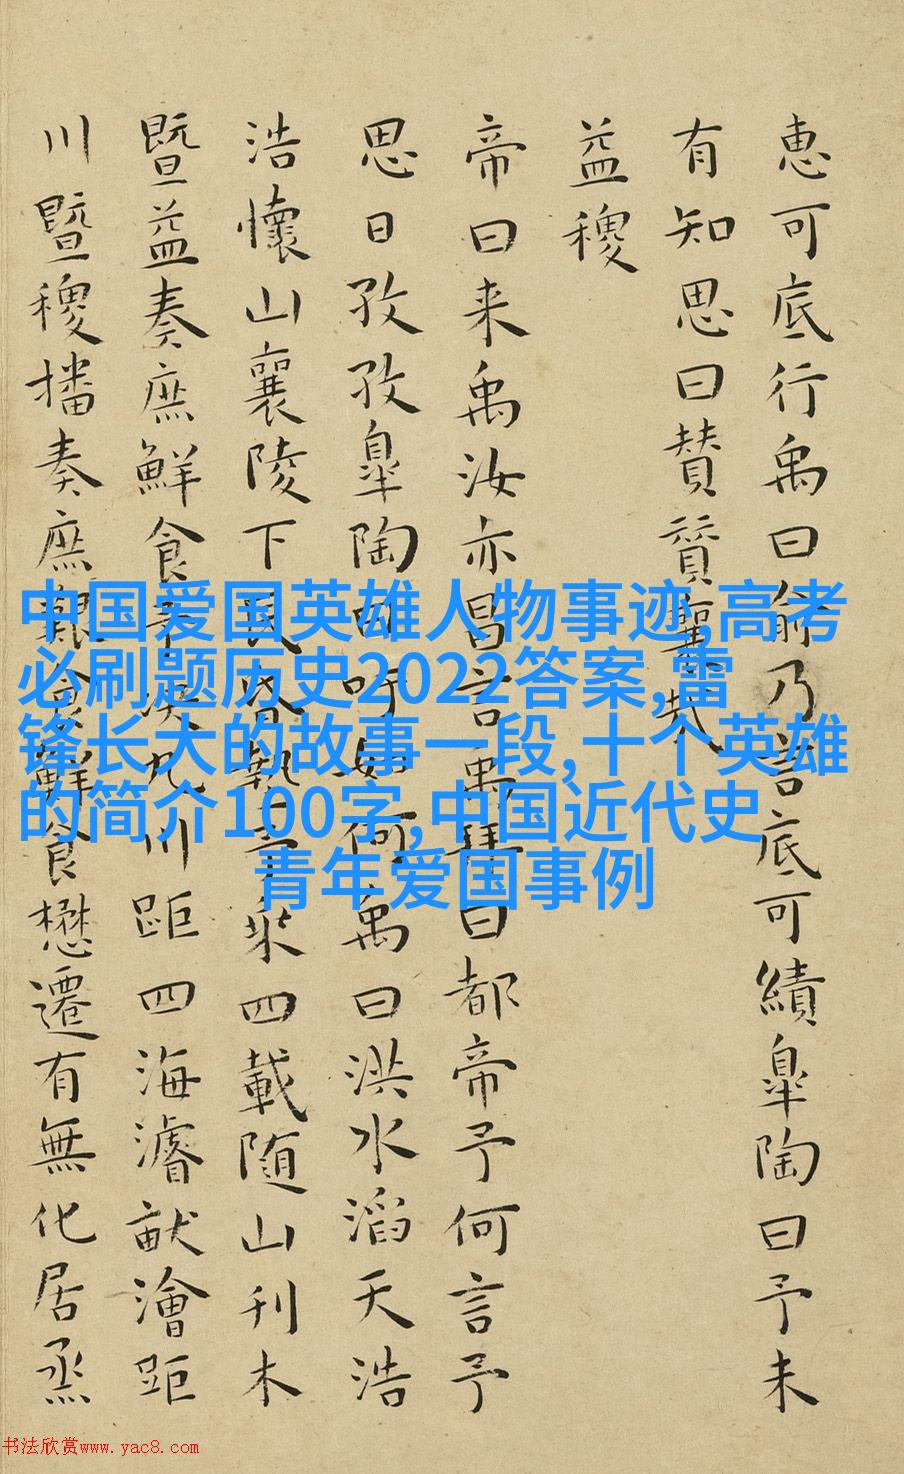 惠可底行禹曰俞乃言底可績皐陶曰予未
有知思曰賛賛襄哉
益稷
帝曰来禹汝亦昌言禹拜曰都帝予何言予
思日孜孜皐陶曰吁如何禹曰洪水滔天浩
浩懷山襄陵下民昏墊予乘四載随山刊木
暨益奏庶鮮食予決九川距四海濬畎澮距
川暨稷播奏庶艱食鮮食懋遷有無化居烝
中国爱国英雄人物事迹,高考
必刷题历史2022答案,雷
锋长大的故事一段,十个英雄
的简介100字,中国近代史
青年爱国事例
书法欣赏www.yac8.com